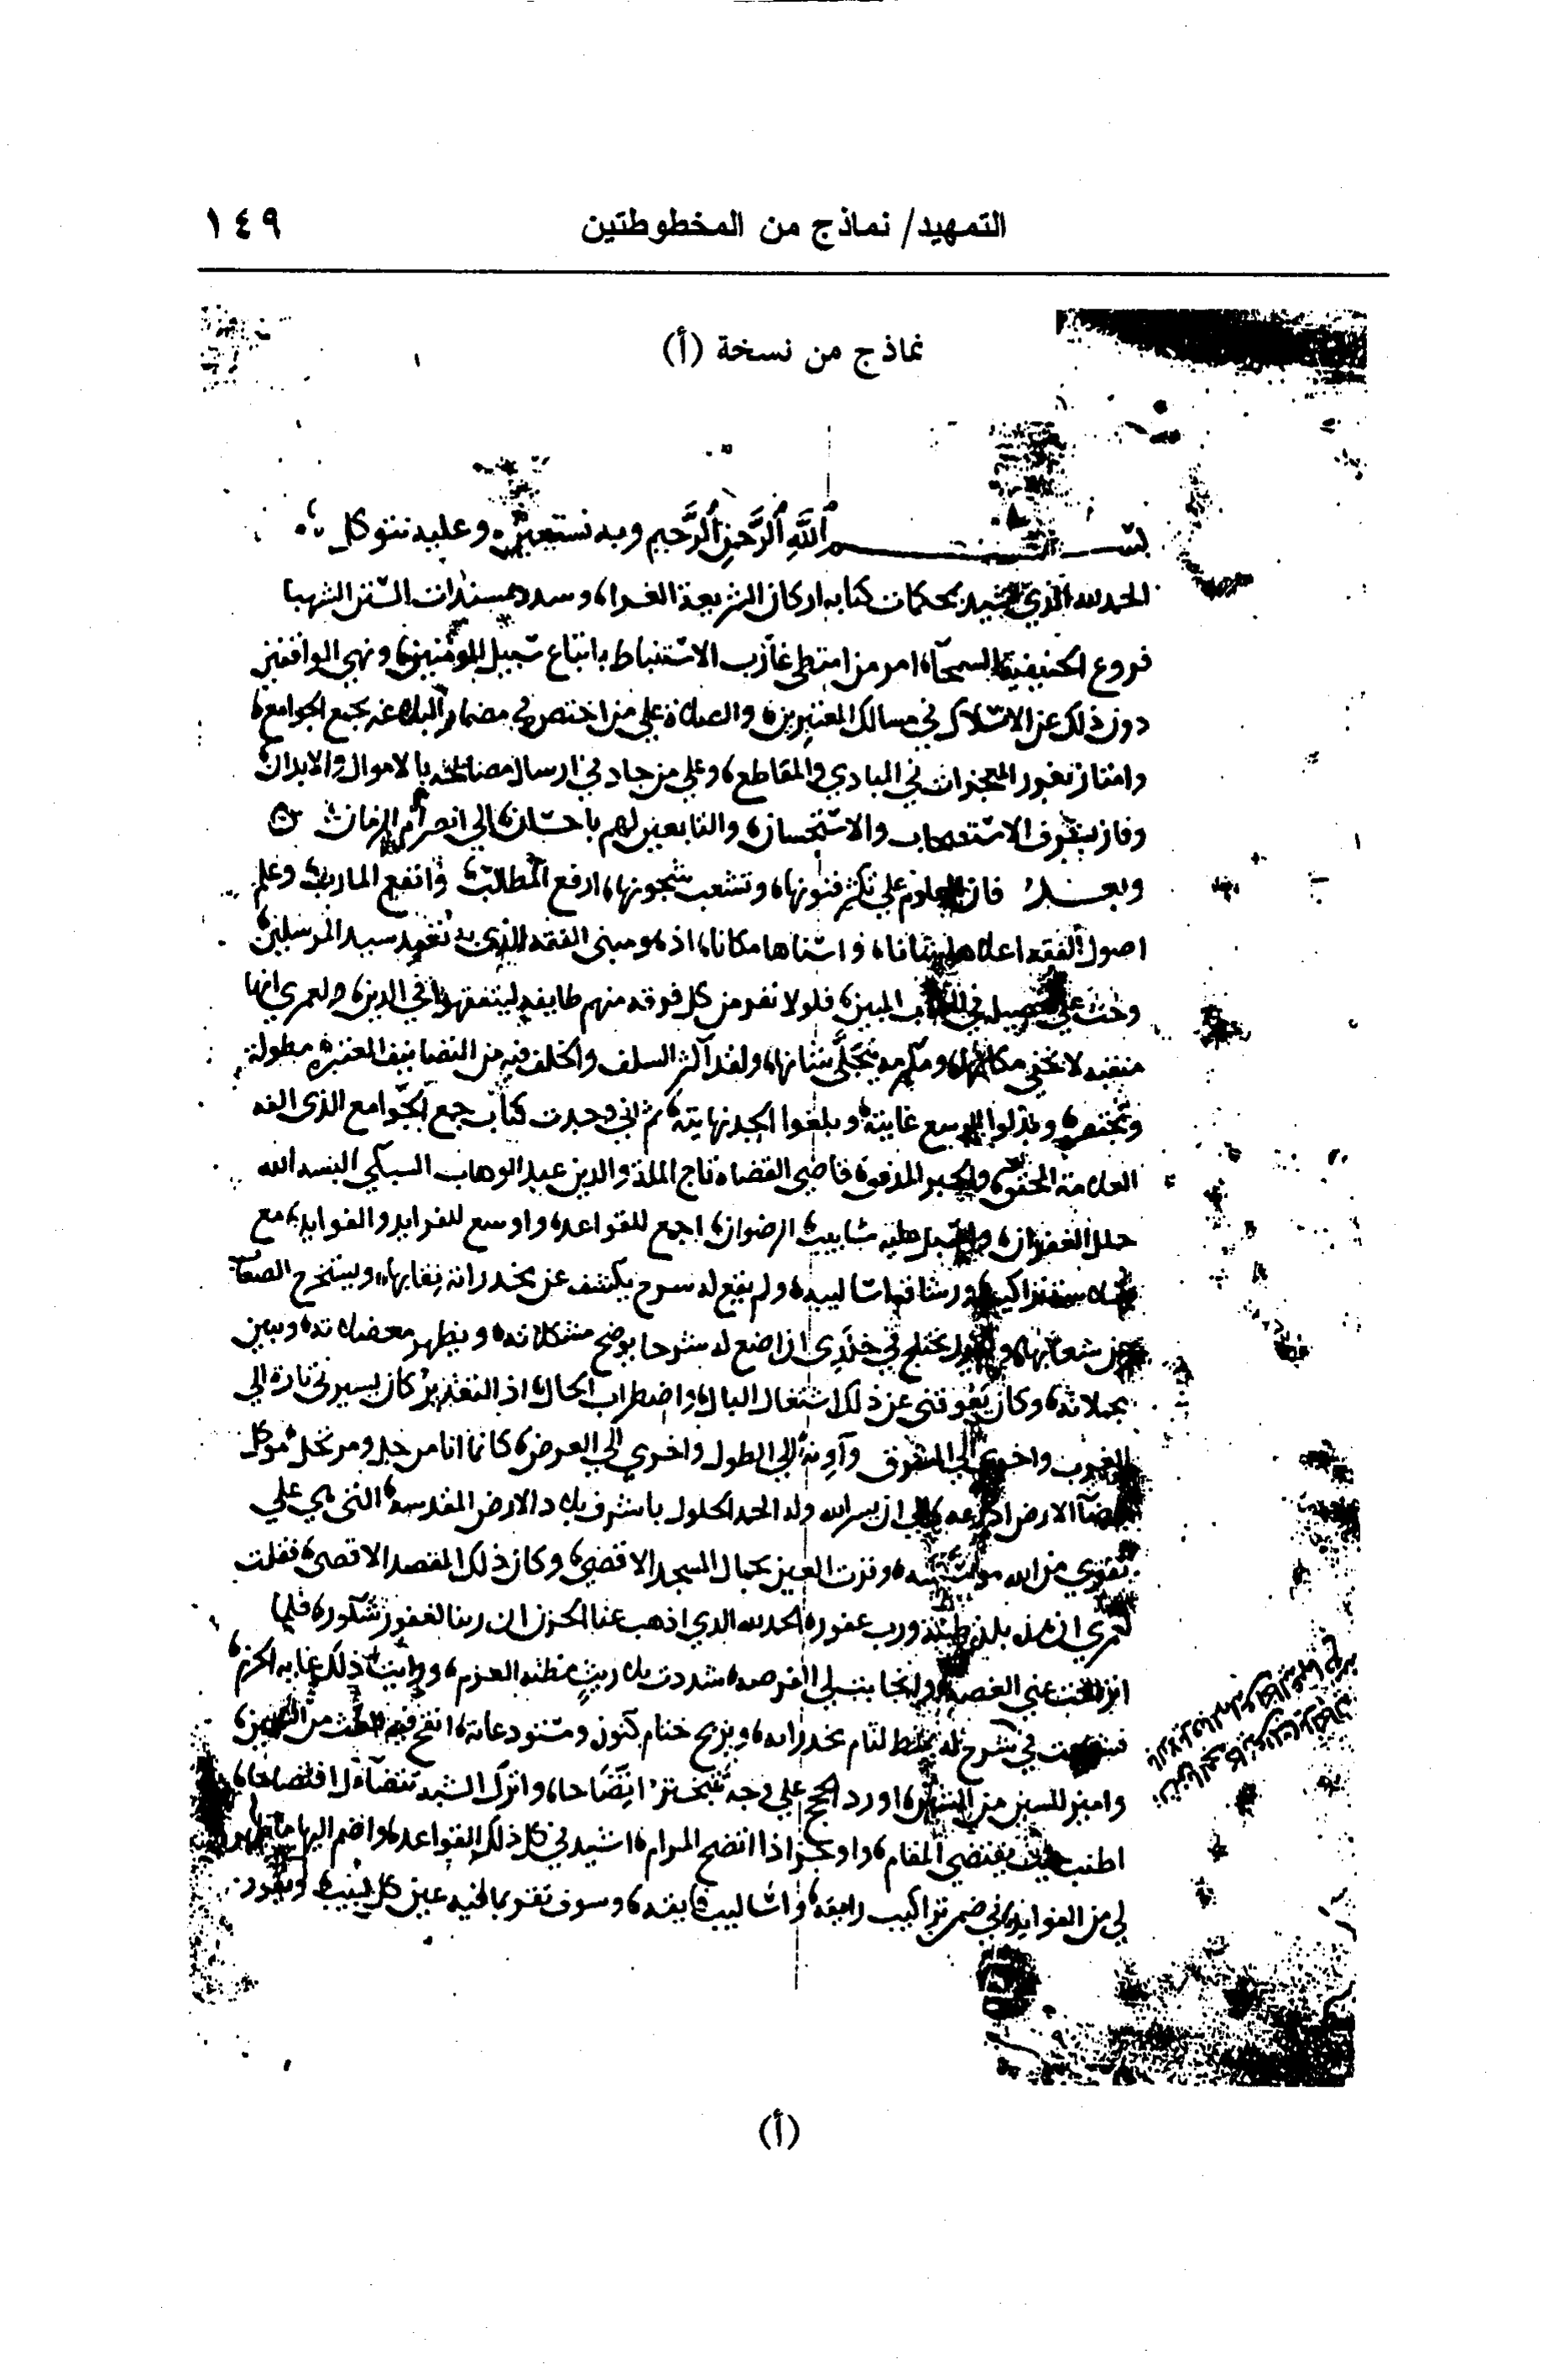 التمهيد/ نماذج من المخطوطتين
١٤٩
نماذج من نسخة (أ)
بسم الله الرحمن الرحيم وبه نستعين وعليه نتوكل
الحمد لله الذي شيد بمحكمات كتابه اركان الشريعة الغراء وسدد بمسندات السنن الشهبا
فروع الحنيفية السمحآء امر من امتطى غارب الاستنباط باتباع سبيل المومنين ونهى الواقفين
دون ذلك عن الانسلاك في مسالك المعتبرين والصلاة على من اختص في مضمار البلاغة بجمع الجوامع
وامتاز بغرر المعجزات في المبادي والمقاطع وعلى من جاد في ارسال مصالحه بالاموال والابدان
وفاز بشرف الاستصحاب والاستحسان والتابعين لهم باحسان الى انصرام الزمان
وبعد فان العلوم على تكثر فنونها وتشعب شجونها ارفع المطالب وانفع المارب وعلم
اصول الفقه اعلاها شانا واسناها مكانا اذ هو مبنى الفقه الذي سيد المرسلين
وحث على تحصيله في الكتاب المبين فلولا نفر من كل فرقة منهم طايفة ليتفقهوا في الدين ولعمري انها
منقبة لا تخفى مكانها ومكرمة تجلى شانها ولقد اكثر السلف والخلف فيه من التصانيف المعتبرة مطولة
ومختصرة وبذلوا الوسع غايته وبلغوا الجد نهايته ثم اني وجدت كتاب جمع الجوامع الذي الفه
العلامة المحقق والحبر المدقق قاضي القضاة تاج الملة والدين عبد الوهاب السبكي البسه الله
حلل الغفران واسبل عليه شابيب الرضوان اجمع للقواعد واوسع للفرايد والفوايد مع
تراكيبه ورشاقة اساليبه ولم يقع له شرح يكشف عن مخدراته نقابها ويستخرج الصعاب
من شعابها يختلج في خلدي ان اضع له شرحا يوضح مشكلاته ويظهر معضلاته ويبين
مجملاته وكان يعوقني عن ذلك اشتغال البال واضطراب الحال اذ التقدير كان يسيرني تارة الى
الغرب واخرى الى الشرق وآونة الى الطول واخرى الى العرض كانما انا من حل ومرتحل موكل
بفضآ الارض اذرعه الى ان يسر الله وله الحمد الحلول باشرف بلاد الارض المقدسة التي هي على
تقوى من الله موسسة وقرت العين بجمال المسجد الاقصى وكان ذلك المقصد الاقصى فقلت
لعمري ان هذه بلدة طيبة ورب غفور الحمد لله الذي اذهب عنا الحزن ان ربنا لغفور شكور فلما
انزاحت عني الغصة الفرصة شددت العزم ورايت ذلك غاية الحزم
فشرعت في شرح له يميط لثام مخدراته ويزيح ختام كنوزه ومستودعاته انقح فيه الغث من السمين
واميز للسين من الشين اورد الحجج على وجه تتبختر اتضاحا واترك الشبه تتضآل افتضاحا
اطنب حيث يقتضي المقام واوجز اذا اتضح المرام اشيد في كل ذلك القواعد واضم اليها ما ظهر
لي من الفوايد في ضمن تراكيب رايقة واساليب فايقة وسوف تقر بما فيه عين كل لبيب
(أ)